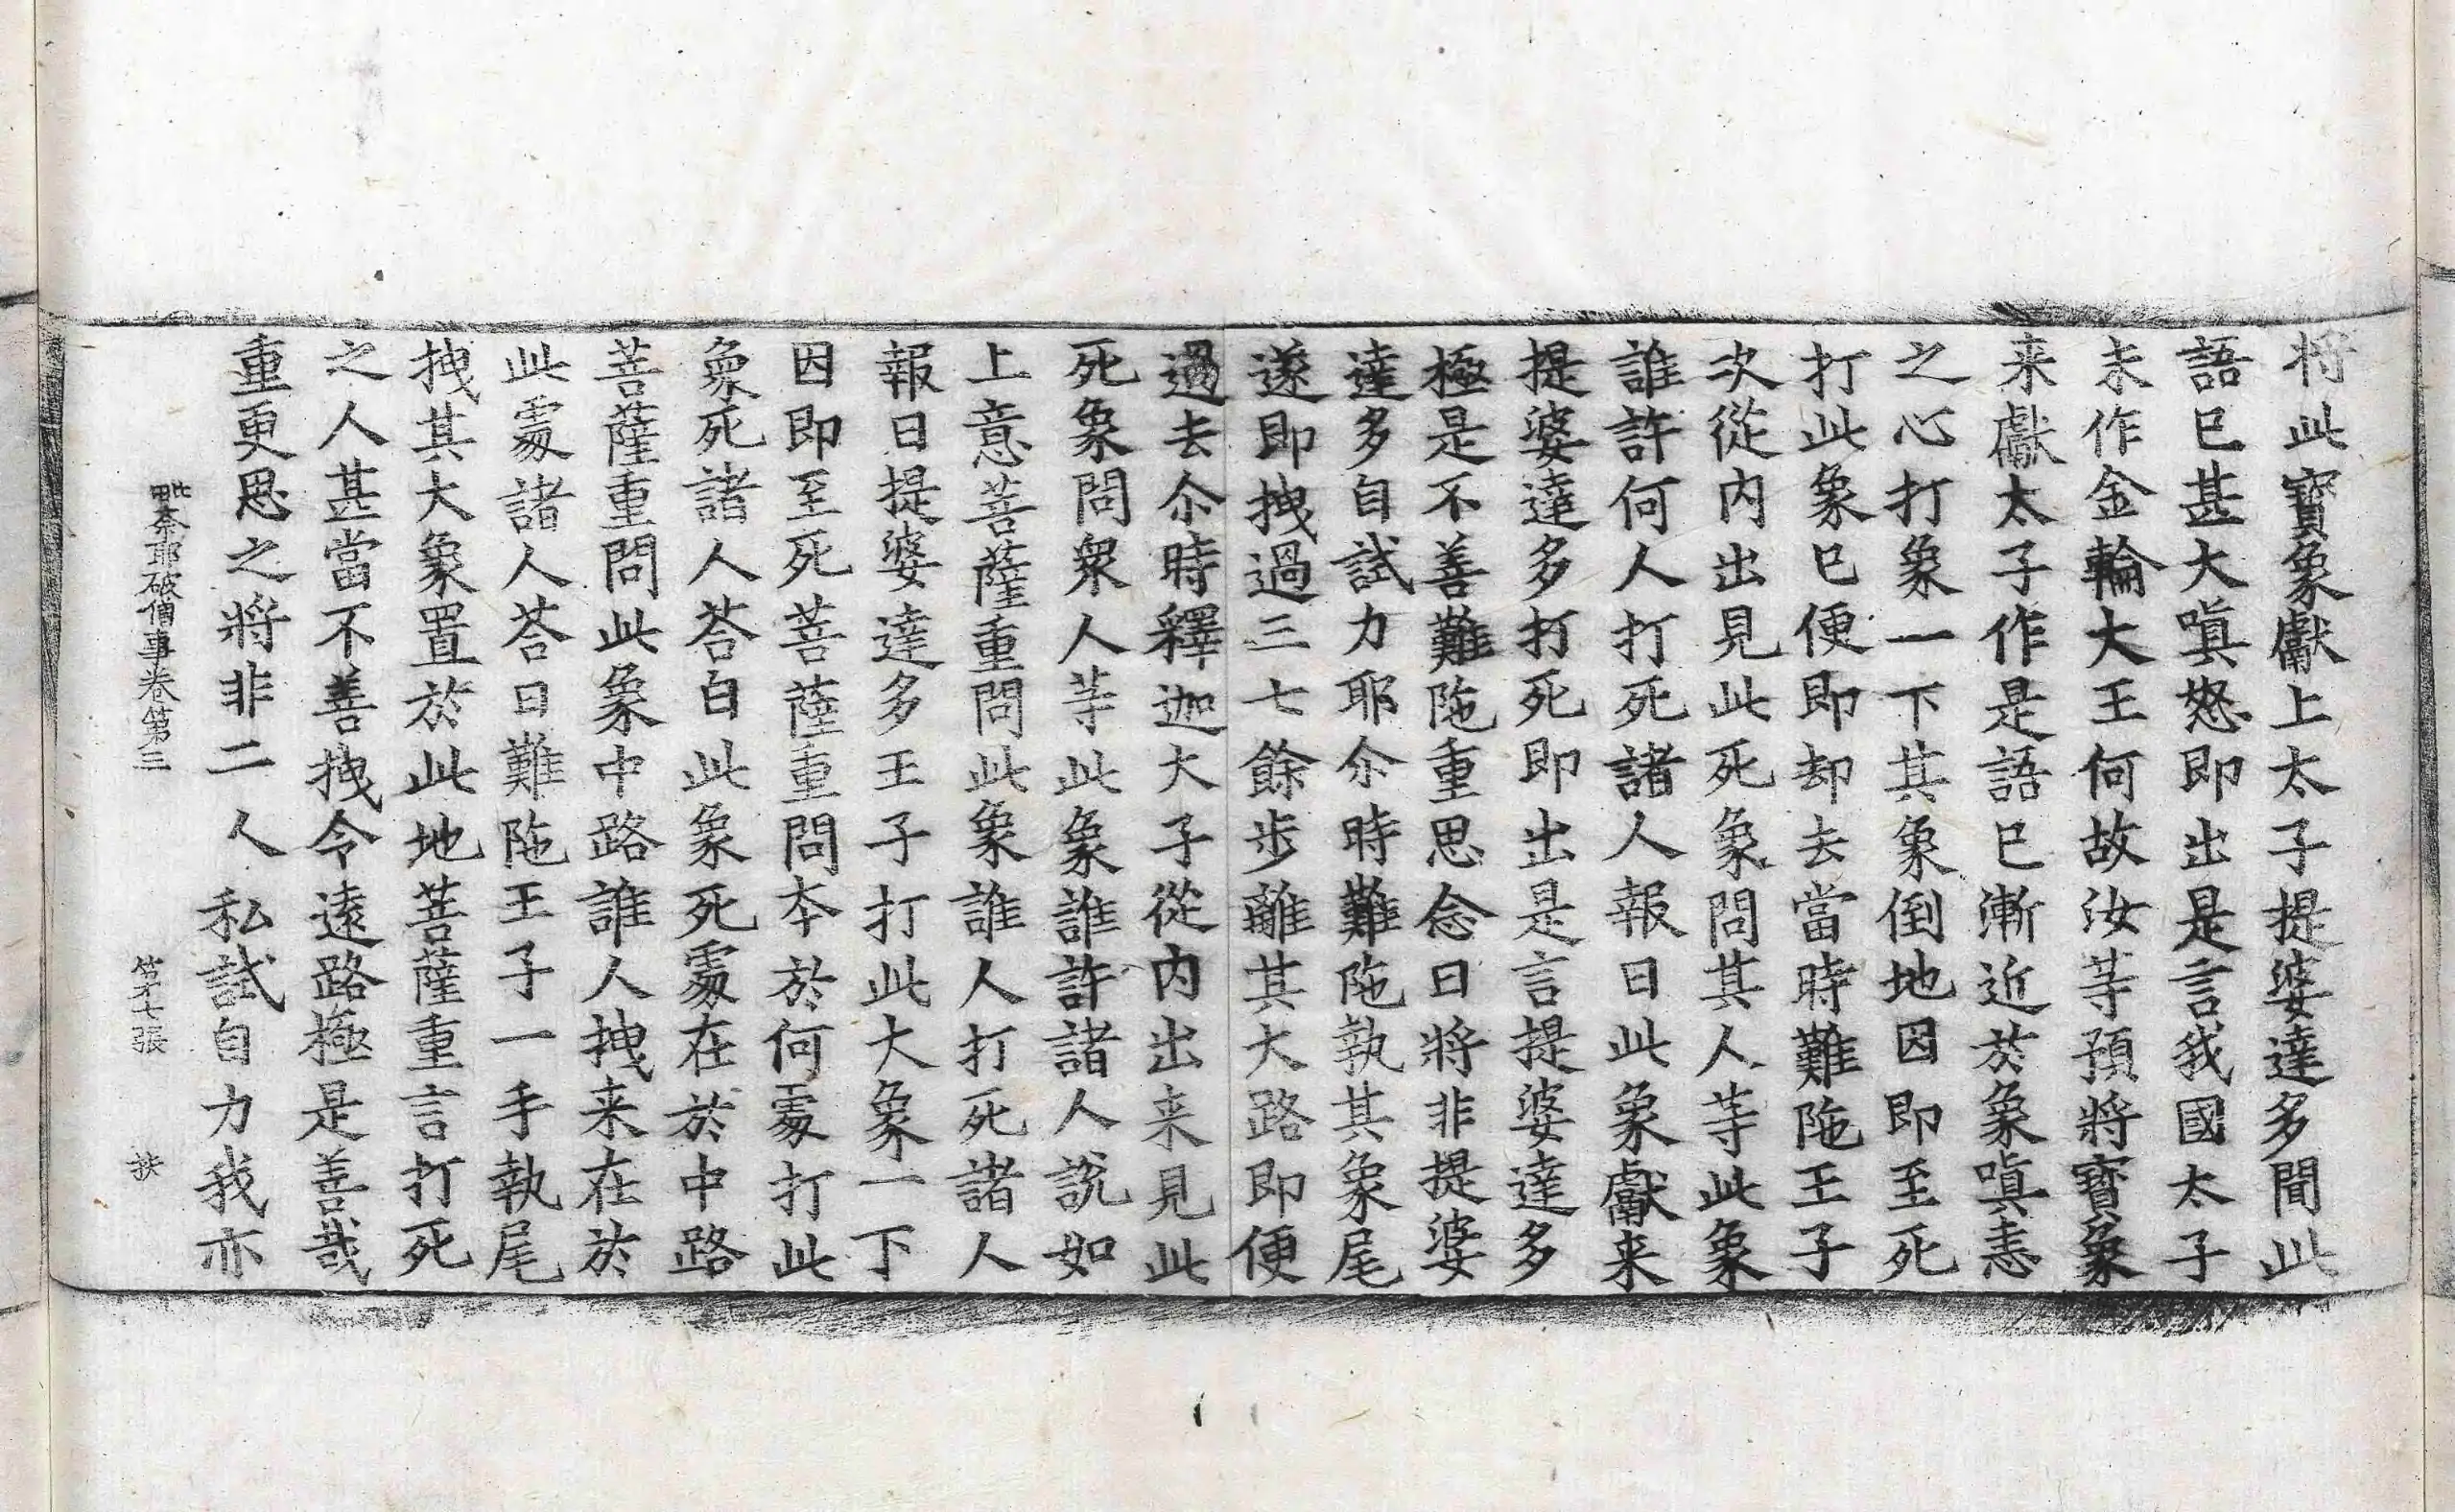 將此寶象獻上太子提婆達多聞此
語已甚大嗔怒即出是言我國太子
未作金輪大王何故汝䓁預將寶象
来獻太子作是語已漸近於象嗔恚
之心打象一下其象倒地因即至死
打此象已便即却去當時難陁王子
次從内出見此死象問其人等此象
誰許何人打死諸人報曰此象獻来
提婆達多打死即出是言提婆達多
極是不善難陁重思念曰將非提婆
達多自試力耶尒時難陁執其象尾
遂即拽過三七餘步離其大路即便
過去尒時釋迦大子從内出来見此
死象問衆人䓁此象誰許諸人說如
上意菩薩重問此象誰人打死諸人
報曰提婆達多王子打此大象一下
因即至死菩薩重問夲於何處打此
象死諸人荅白此象死處在於中路
菩薩重問此象中路誰人拽来在於
此處諸人荅曰難陁王子一手執尾
拽其大象置於此地菩薩重言打死
之人甚當不善拽令遠路極是善哉
重更思之將非二人私試自力我亦
毗奈耶破僧事卷第三　第七張　扶